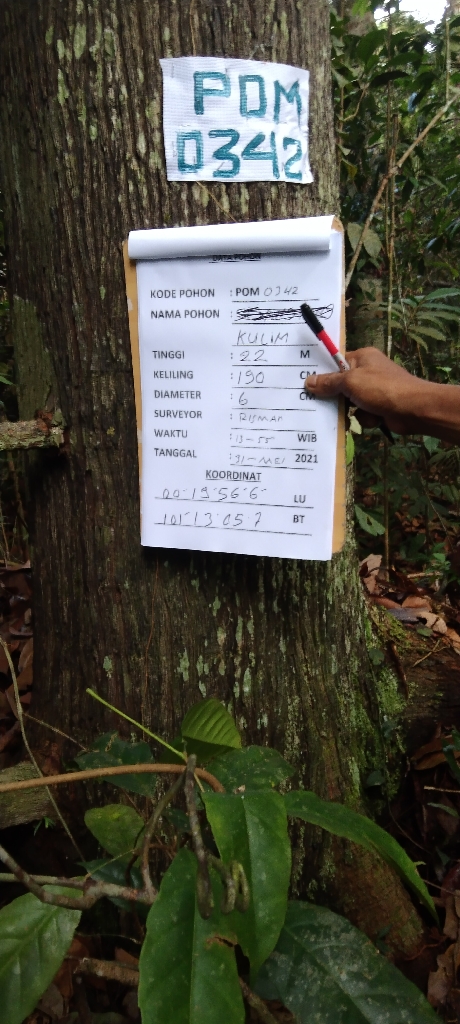 POM
0342
DATA POHON
KODE POHON : POM 0342
NAMA POHON :
KULIM
TINGGI : 22 M
KELILING : 190 CM
DIAMETER : 6 CM
SURVEYOR : RISMAN
WAKTU : 13-55 WIB
TANGGAL : 31-MEI 2021
KOORDINAT
00-19-56-6- LU
101-13-05-7 BT